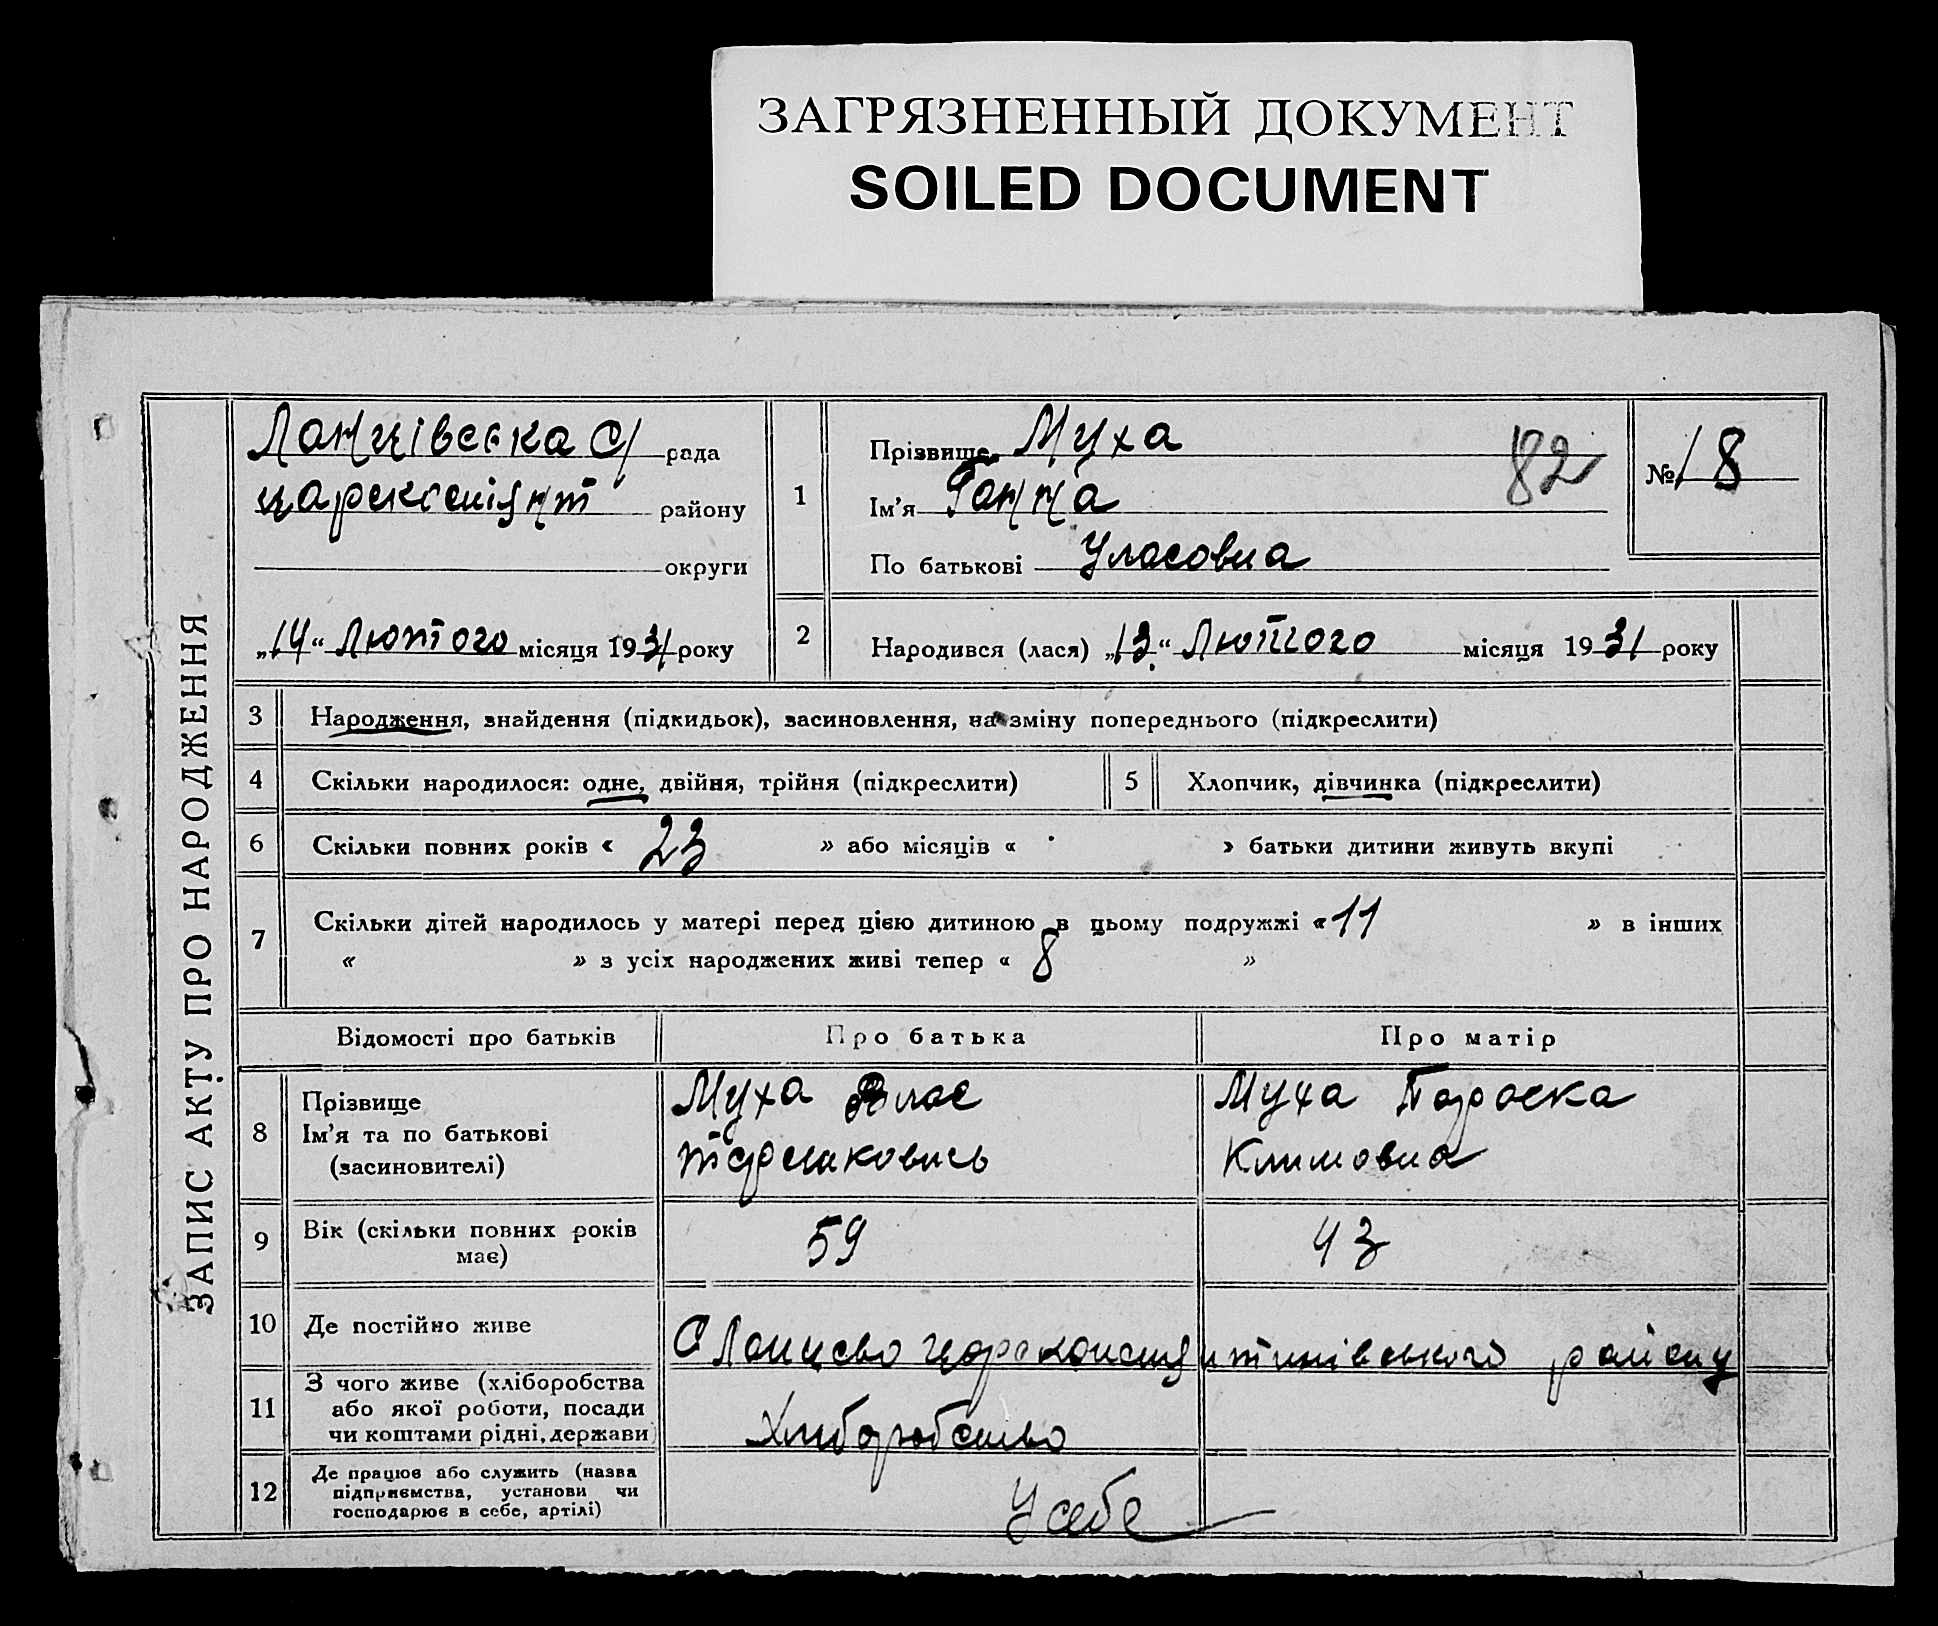 ЗАГРЯЗНЕННЫЙ ДОКУМЕНТ
SOILED DOCUMENT
ЗАПИС АКТУ ПРО НАРОДЖЕННЯ
Ланцівська С/ рада
району
округи
„14“ Лютого місяця 1931 року
1
Прізвище Муха 82
Ім'я Ганна
По батькові Уласовна
№ 18
2 Народився (лася) „13“ Лютого місяця 1931 року
3 Народження, знайдення (підкидьок), засиновлення, на зміну попереднього (підкреслити)
4 Скільки народилося: одне, двійня, трійня (підкреслити) 5 Хлопчик, дівчинка (підкреслити)
6 Скільки повних років « 23 » або місяців « » батьки дитини живуть вкупі
7 Скільки дітей народилось у матері перед цією дитиною в цьому подружжі «11 » в інших
« » з усіх народжених живі тепер « 8 »
Відомості про батьків Про батька Про матір
8 Прізвище Ім'я та по батькові (засиновителі)
Муха Влас
Муха Параска
Климовна
9 Вік (скільки повних років має) 59 43
10 Де постійно живе С Ланцево району
11 З чого живе (хліборобства або якої роботи, посади чи коштами рідні, держави) Хліборобство
12 Де працює або служить (назва підприємства, установи чи господарює в себе, артілі) У себе